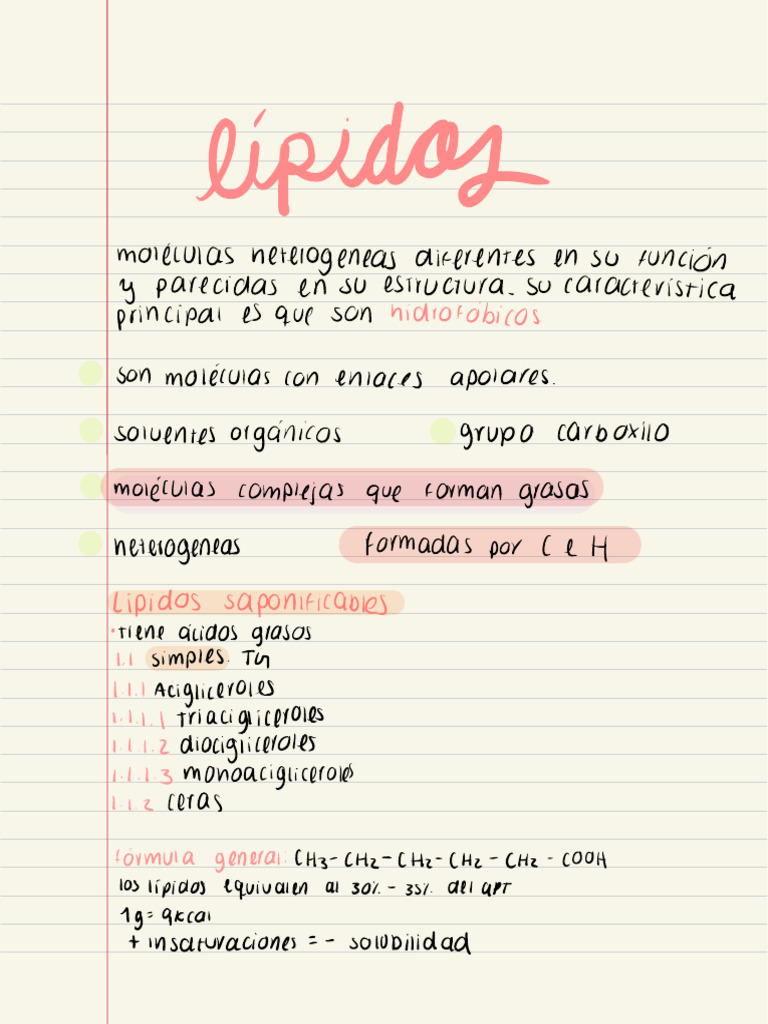 lípidos
moléculas heterogeneas diferentes en su función
y parecidas en su estructura. su característica
principal es que son hidrofóbicos
son moléculas con enlaces apolares.
solventes orgánicos grupo carboxilo
moléculas complejas que forman grasas
heterogeneas formadas por C e H
Lípidos saponificables
•tiene ácidos grasos
1.1 simples. TG
1.1.1 Acigliceroles
1.1.1.1 triacigliceroles
1.1.1.2 diocigliceroles
1.1.1.3 monoacigliceroles
1.1.2 ceras
fórmula general: CH3-CH2-CH2-CH2-CH2-COOH
los lípidos equivalen al 30%-35% del
1g=9kcal
+ insaturaciones = - solubilidad